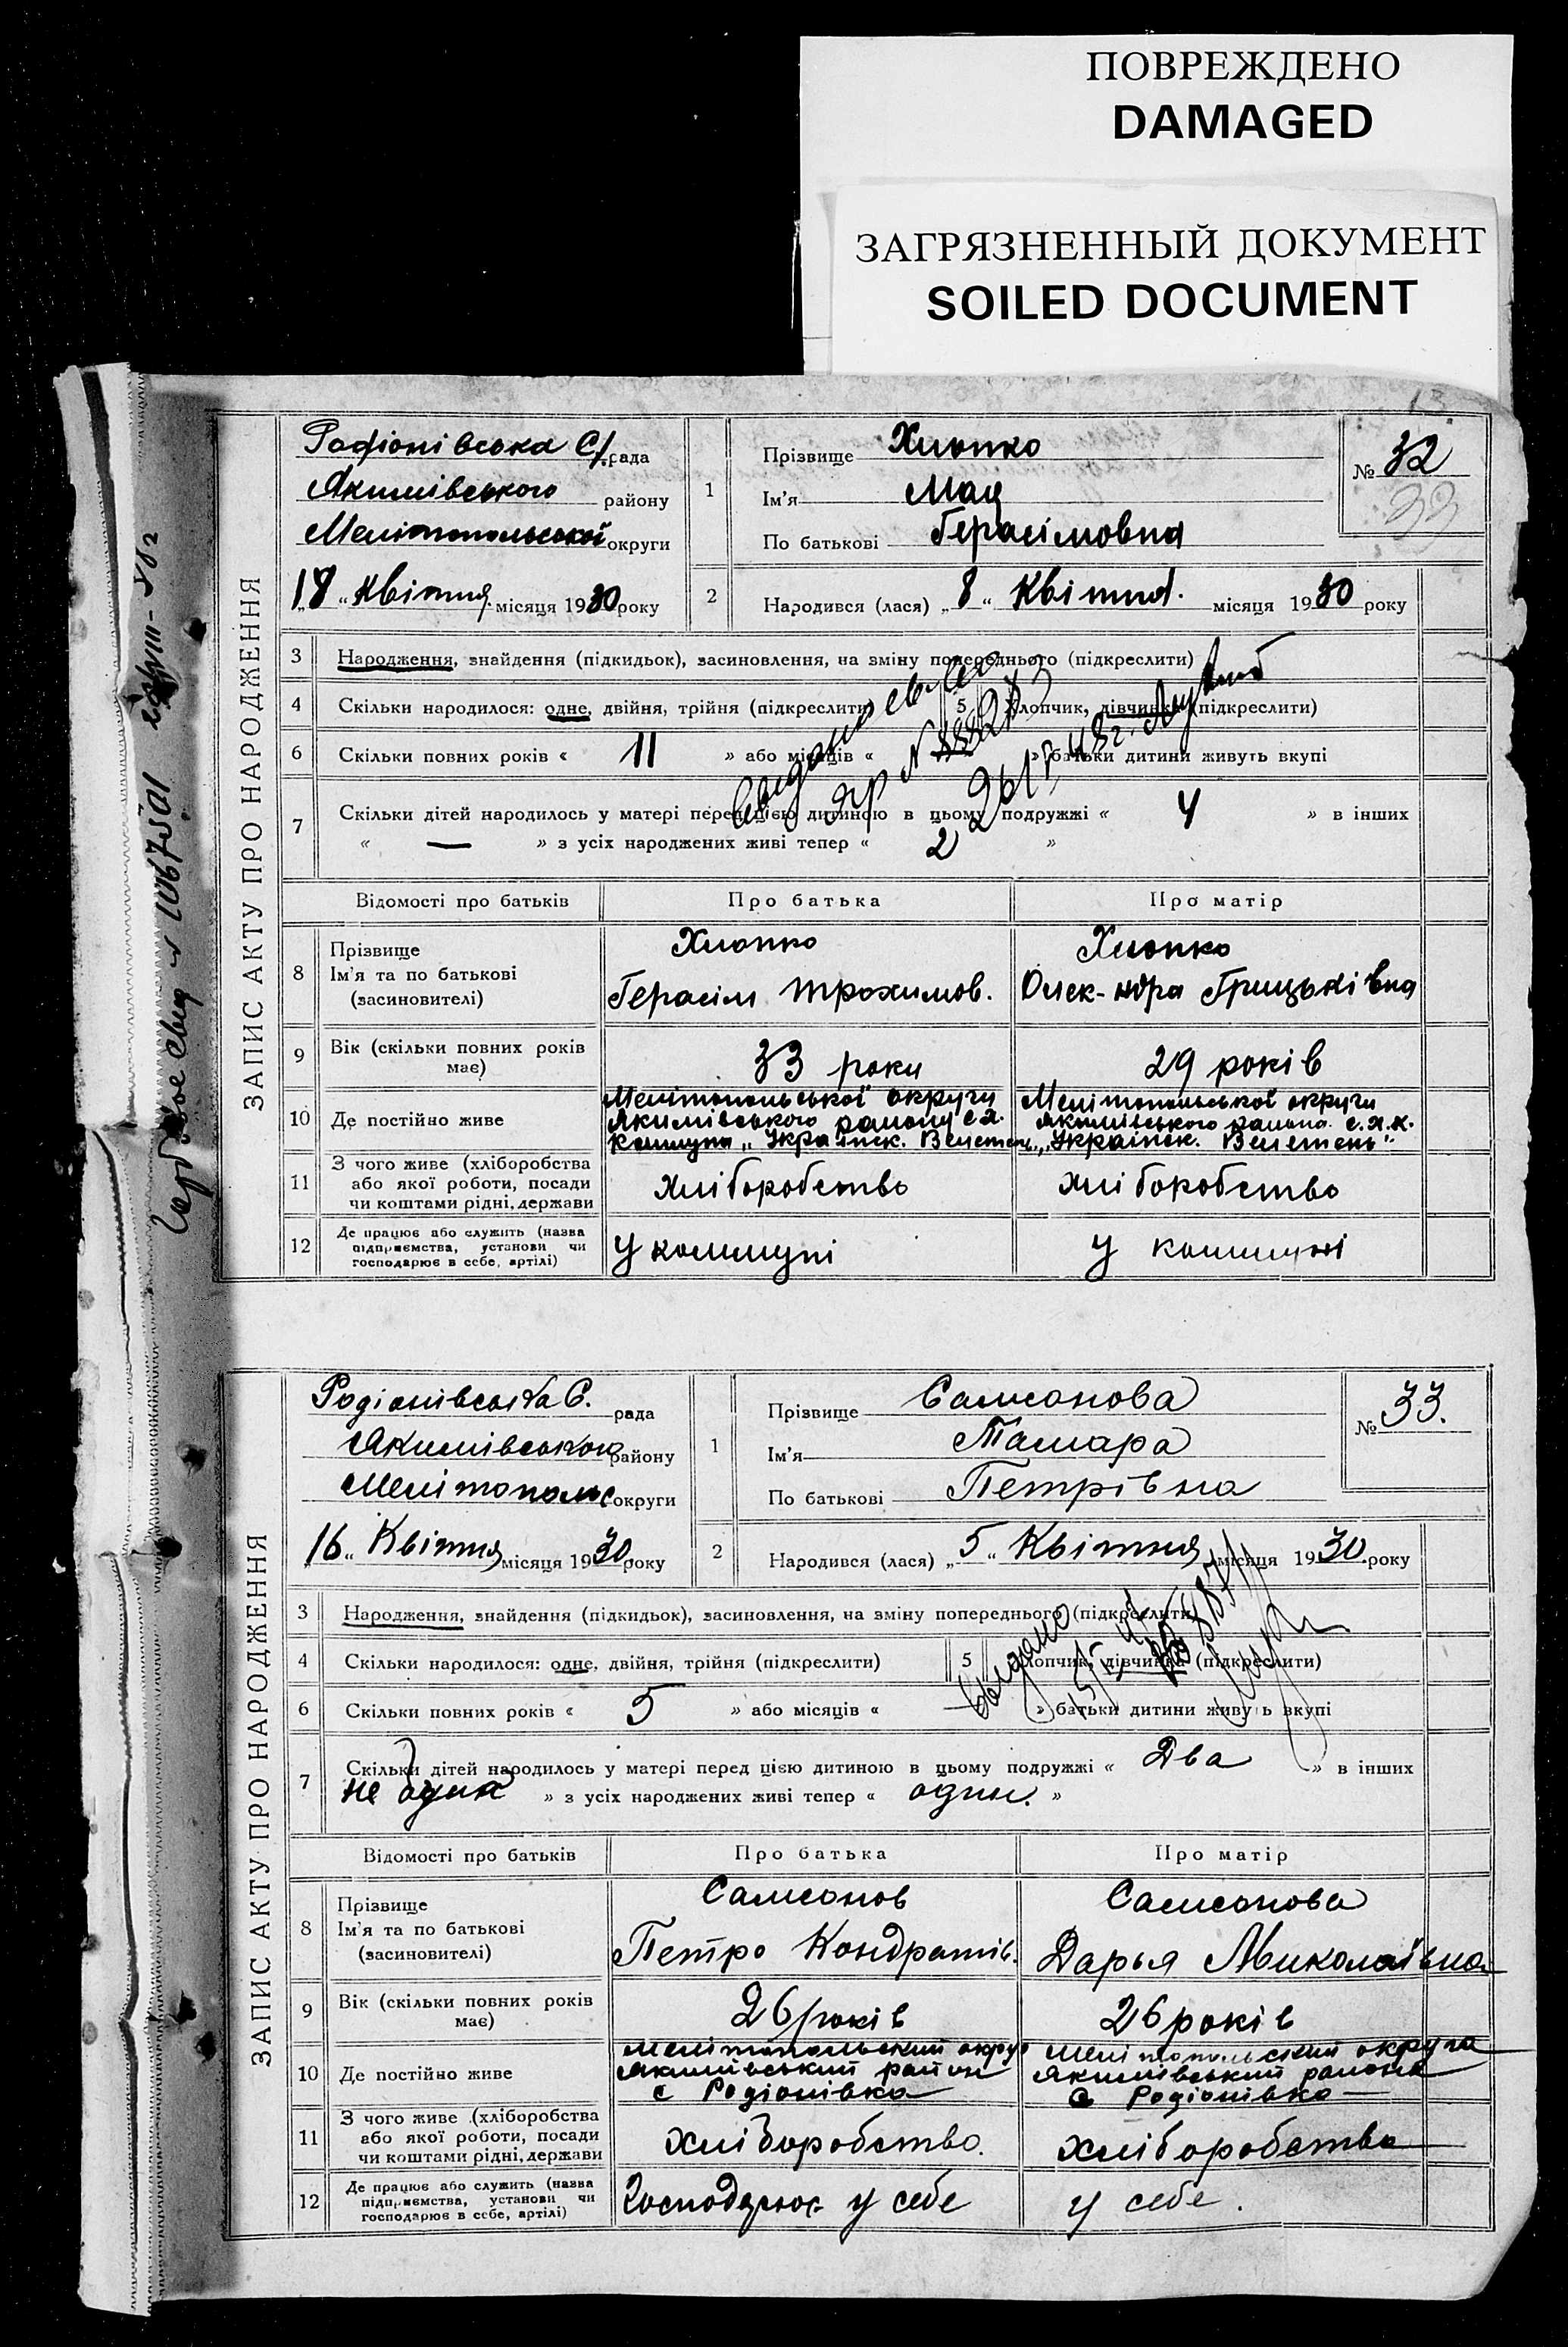 ПОВРЕЖДЕНО
DAMAGED
ЗАГРЯЗНЕННЫЙ ДОКУМЕНТ
SOILED DOCUMENT
13
ЗАПИС АКТУ ПРО НАРОДЖЕННЯ
Родіонівська С/рада
Якимівського району
Мелітопольської округи
„18“ Квітня місяця 1930 року
1 Прізвище Хлопко
Ім'я Мая
По батькові Герасімовна
№ 32
33
2 Народився (лася) „8“ Квітня. місяця 1930 року
3 Народження, знайдення (підкидьок), засиновлення, на зміну попереднього (підкреслити)
4 Скільки народилося: одне, двійня, трійня (підкреслити) 5 Хлопчик, дівчинка (підкреслити)
6 Скільки повних років « 11 » або місяців « » батьки дитини живуть вкупі
7 Скільки дітей народилось у матері перед цією дитиною в цьому подружжі « 4 » в інших
« — » з усіх народжених живі тепер « 2 »
Відомості про батьків Про батька Про матір
8 Прізвище Хлопко Хлопко
Ім'я та по батькові Герасім Трохимов. Олек-ндра Грицьківна
(засиновителі)
9 Вік (скільки повних років має) 33 роки 29 років
10 Де постійно живе
Мелітопольської округи Якимівського району с.х. Коммуна „Українск. Велетень“
Мелітопольської округи Якимівського района с.х.к. „Українск. Велетень“
11 З чого живе (хліборобства або якої роботи, посади чи коштами рідні, держави хліборобство хліборобство
12 Де працює або служить (назва підприємства, установи чи господарює в себе, артілі) У коммуні У коммуні
ЗАПИС АКТУ ПРО НАРОДЖЕННЯ
Родіонівська С. рада
Якимівського району
Мелітопольс округи
„16“ Квітня місяця 1930 року
1 Прізвище Самсонова
Ім'я Тамара
По батькові Петрівна
№ 33.
2 Народився (лася) „5“ Квітня місяця 1930 року
3 Народження, знайдення (підкидьок), засиновлення, на зміну попереднього (підкреслити)
4 Скільки народилося: одне, двійня, трійня (підкреслити) 5 Хлопчик, дівчинка (підкреслити)
Выдано
6 Скільки повних років « 5 » або місяців « — » батьки дитини живуть вкупі
7 Скільки дітей народилось у матері перед цією дитиною в цьому подружжі « Два » в інших
не » з усіх народжених живі тепер « один. »
Відомості про батьків Про батька Про матір
8 Прізвище Самсонов Самсонова
Ім'я та по батькові Петро Кондратів. Дарья Миколаївна
(засиновителі)
9 Вік (скільки повних років має) 26 років 26 років
10 Де постійно живе
Мелітопольский округ Якимівський район с Родіонівка
Мелітопольский округа Якимівський района с Родіонівка
11 З чого живе (хліборобства або якої роботи, посади чи коштами рідні, держави хліборобство. хліборобство
12 Де працює або служить (назва підприємства, установи чи господарює в себе, артілі) Господарює у себе у себе.